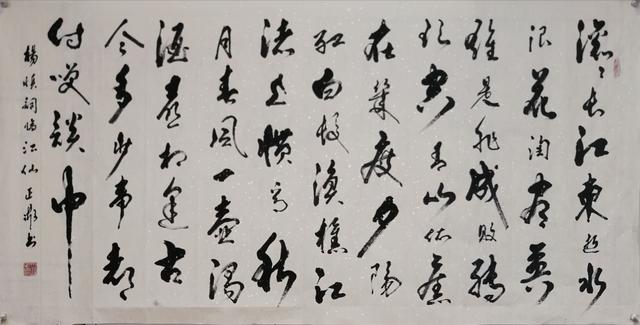 滚滚長江東逝水
浪花淘盡英
雄是非成敗轉
頭空青山依舊
在幾度夕陽
紅白髮漁樵江
渚上惯看秋
月春風一壺濁
酒喜相逢古
今多少事都
付笑談中
楊慎詞臨江仙 正鼎书